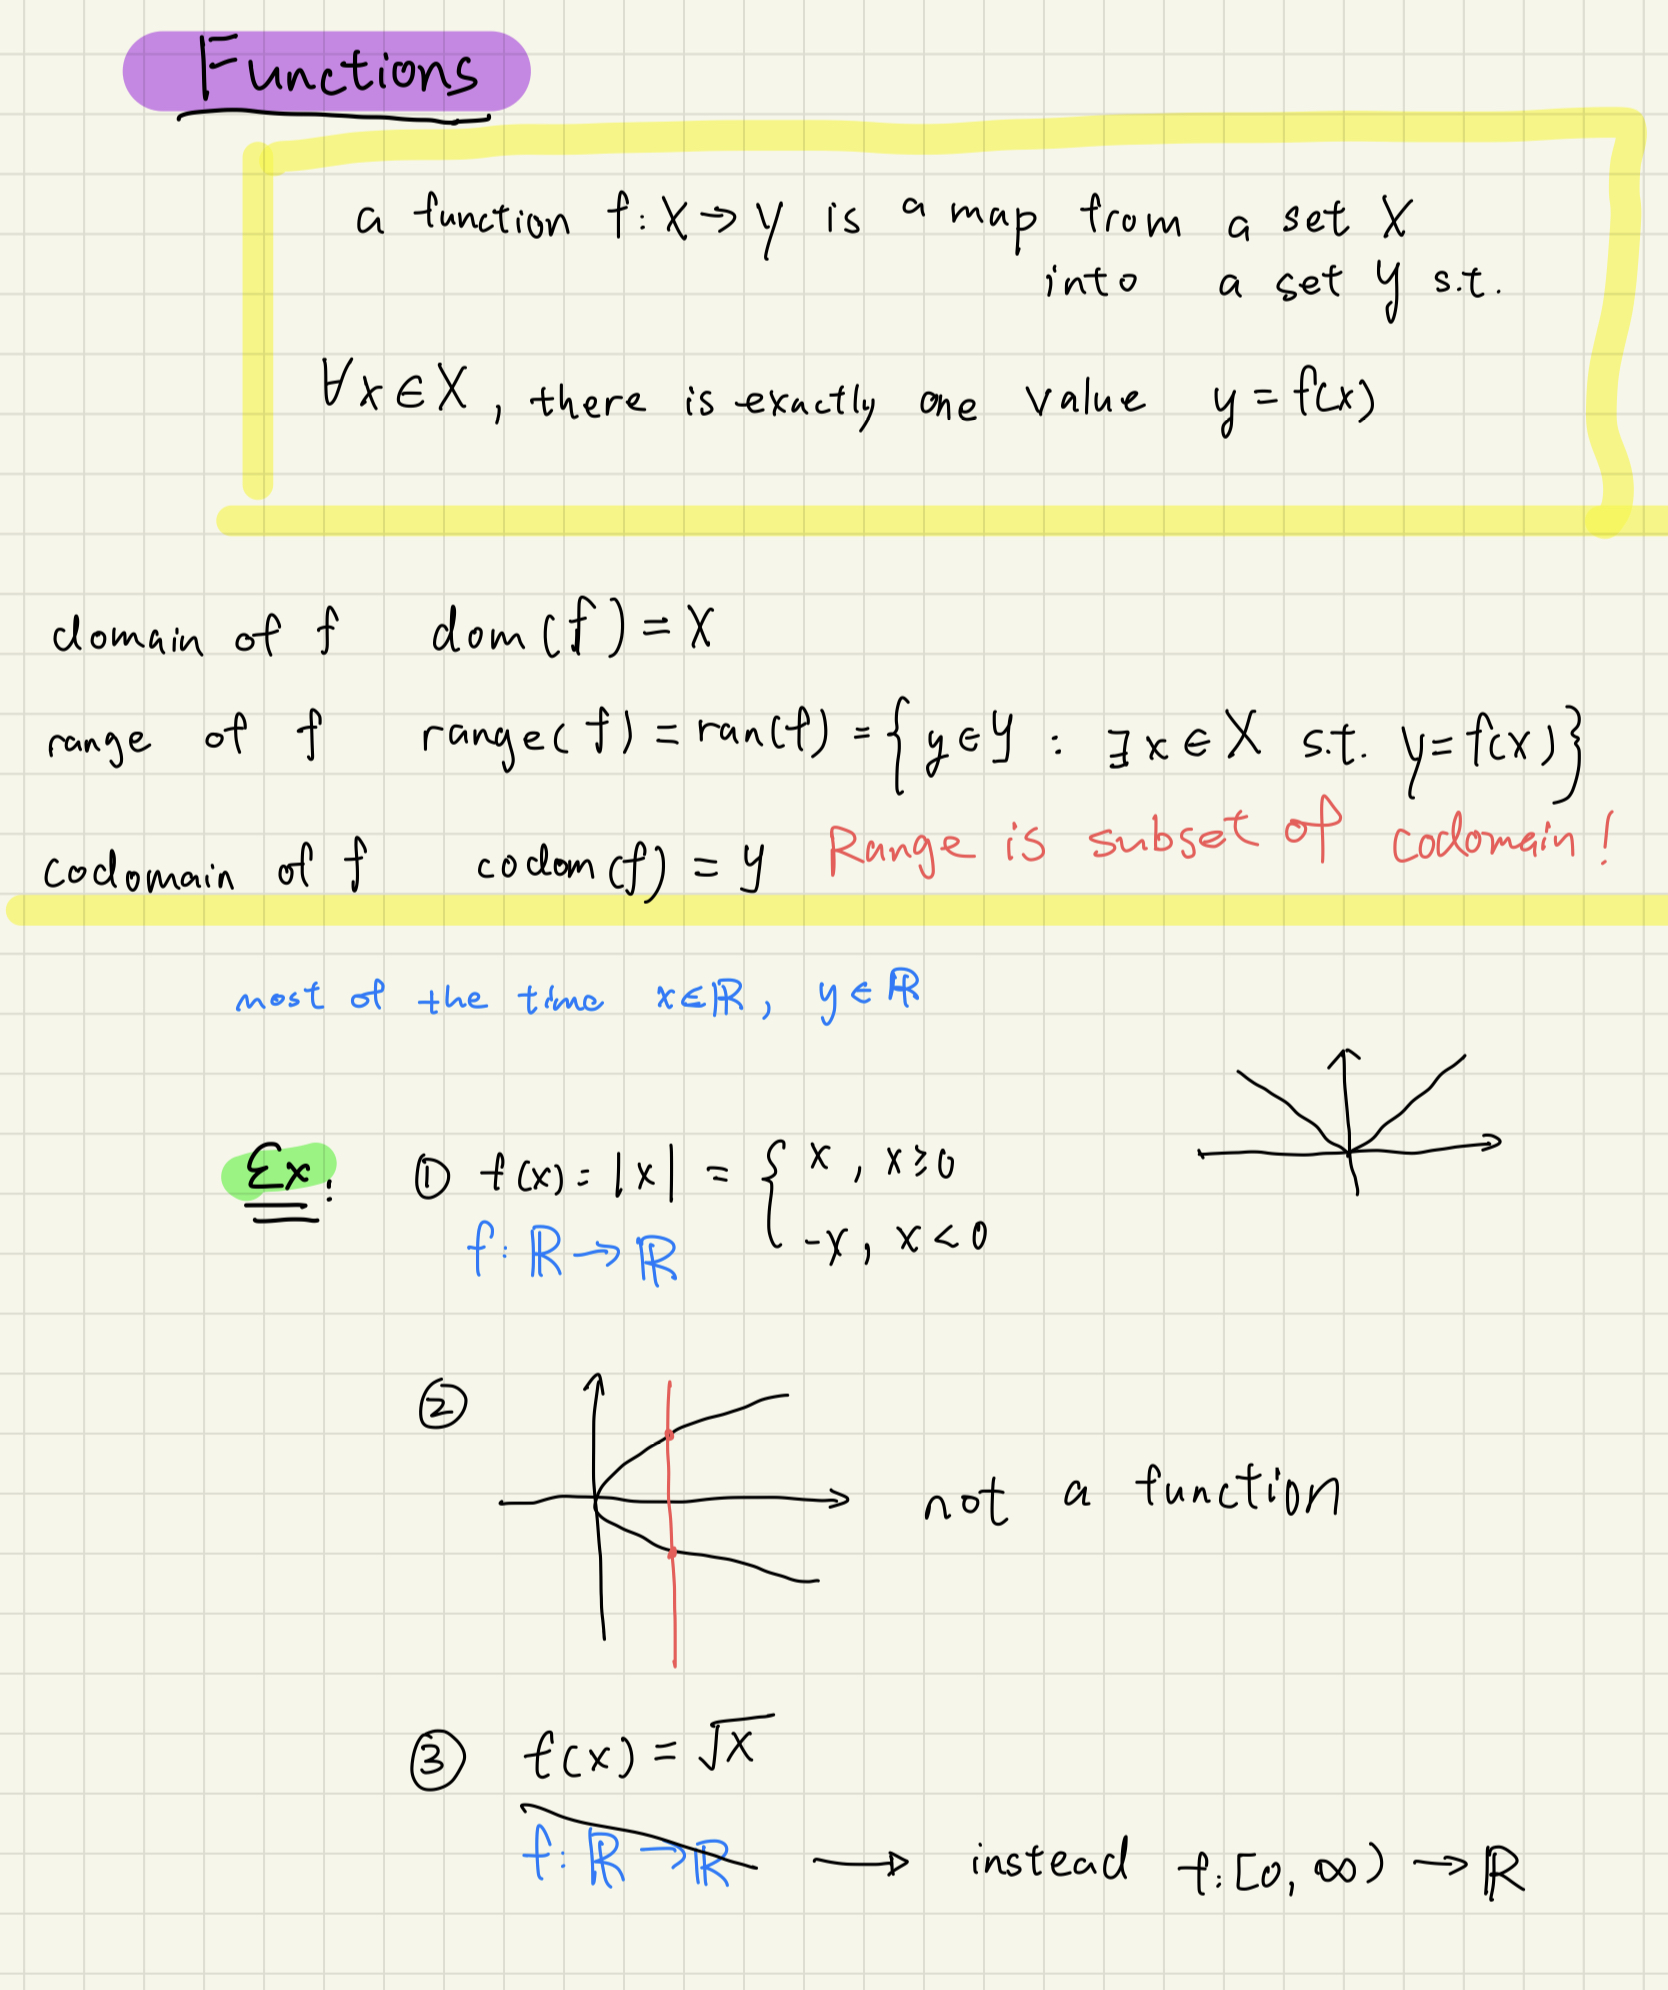 Functions
a function f: X → Y is a map from a set X
into a set Y s.t.
∀x∈X, there is exactly one value y = f(x)
domain of f dom(f) = X
range of f range(f) = ran(f) = {y∈Y : ∃x∈X s.t. y=f(x)}
codomain of f codom(f) = Y Range is subset of codomain!
most of the time x∈ℝ, y∈ℝ
Ex: ① f(x) = |x| = { x, x≥0
-x, x<0
f: ℝ → ℝ
②
not a function
③ f(x) = √x
f: ℝ → ℝ ⟶ instead f: [0, ∞) → ℝ